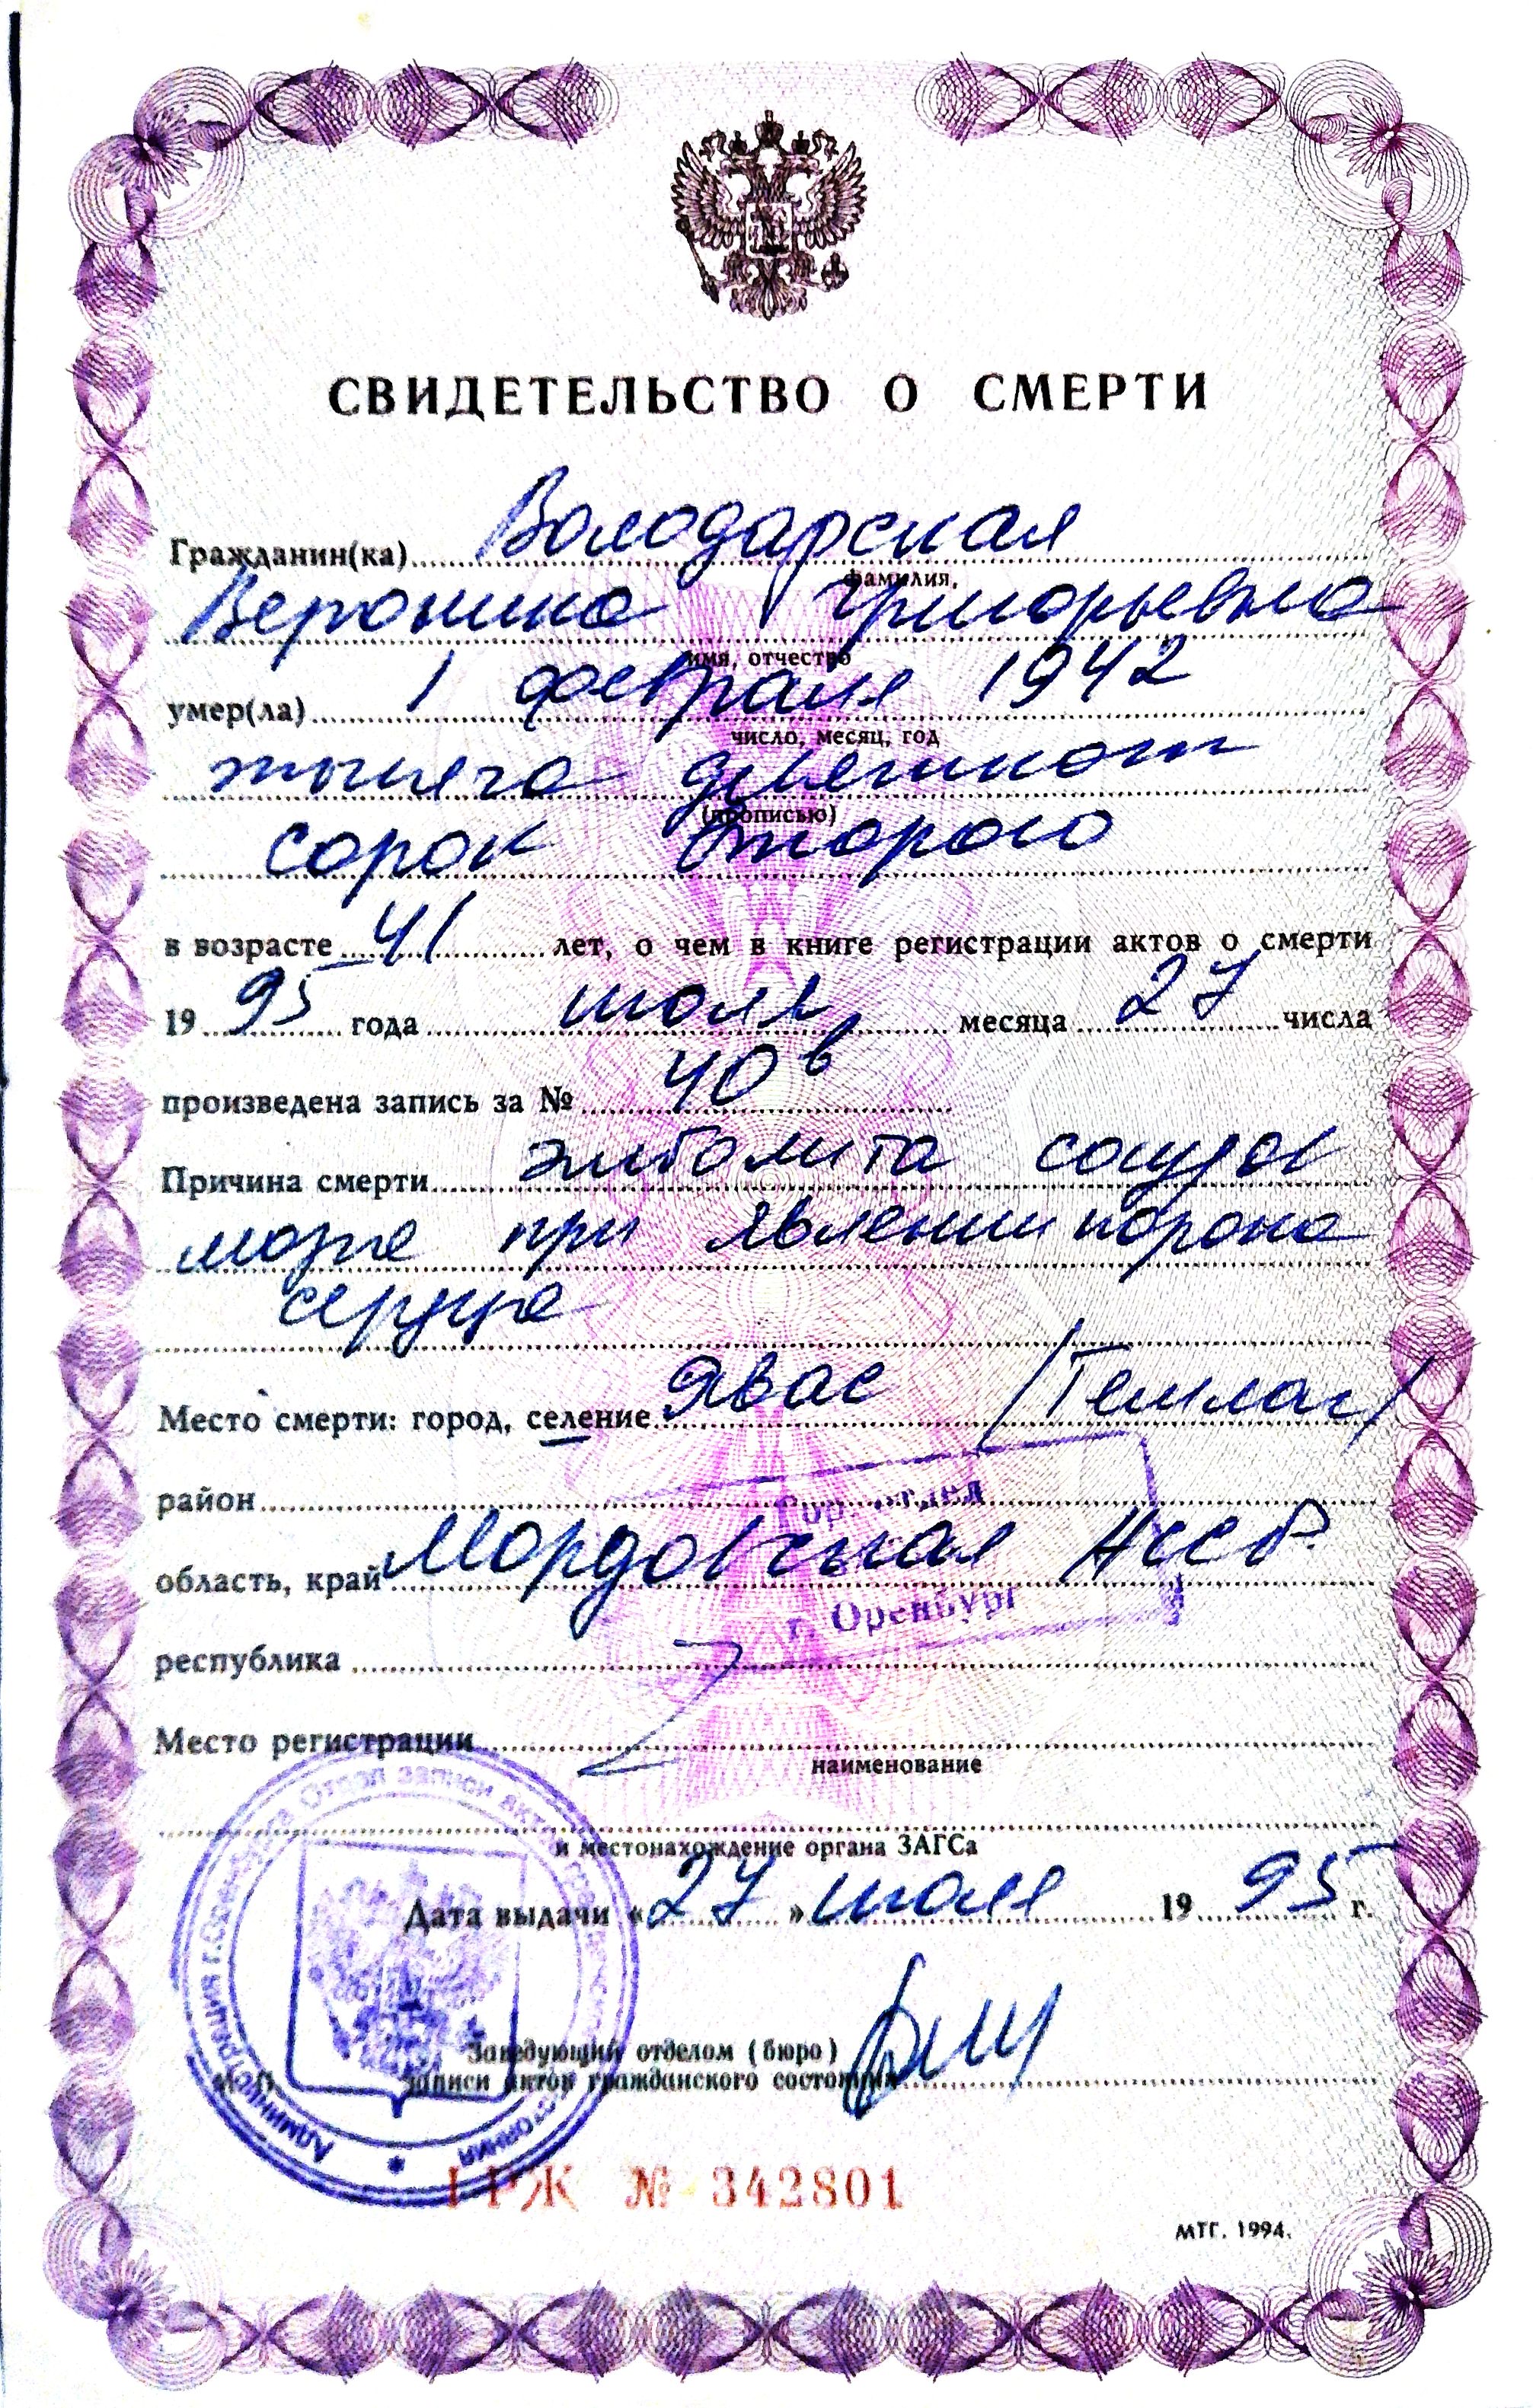 СВИДЕТЕЛЬСТВО О СМЕРТИ
Гражданин(ка) Володарская
фамилия,
Вероника Григорьевна
имя, отчество
умер(ла) 1 февраля 1942
число, месяц, год
тысяча девятьсот
(прописью)
сорок второго
в возрасте 41 лет, о чем в книге регистрации актов о смерти
19 95 года июля месяца 27 числа
произведена запись за № 40в
Причина смерти сосуда
мозга при явлении порока
сердца
Место смерти: город, селение Явас /Темлаг/
район
Гор. отдел
область, край Мордовская АССР.
г. Оренбург
республика
Место регистрации
наименование
и местонахождение органа ЗАГСа
Дата выдачи «27» июля 19 95 г.
Заведующий отделом (бюро)
записи актов гражданского состояния
М. П.
Администрация г.Оренбурга Отдел записи актов гражданского состояния
I-РЖ № 342801
МТГ. 1994.